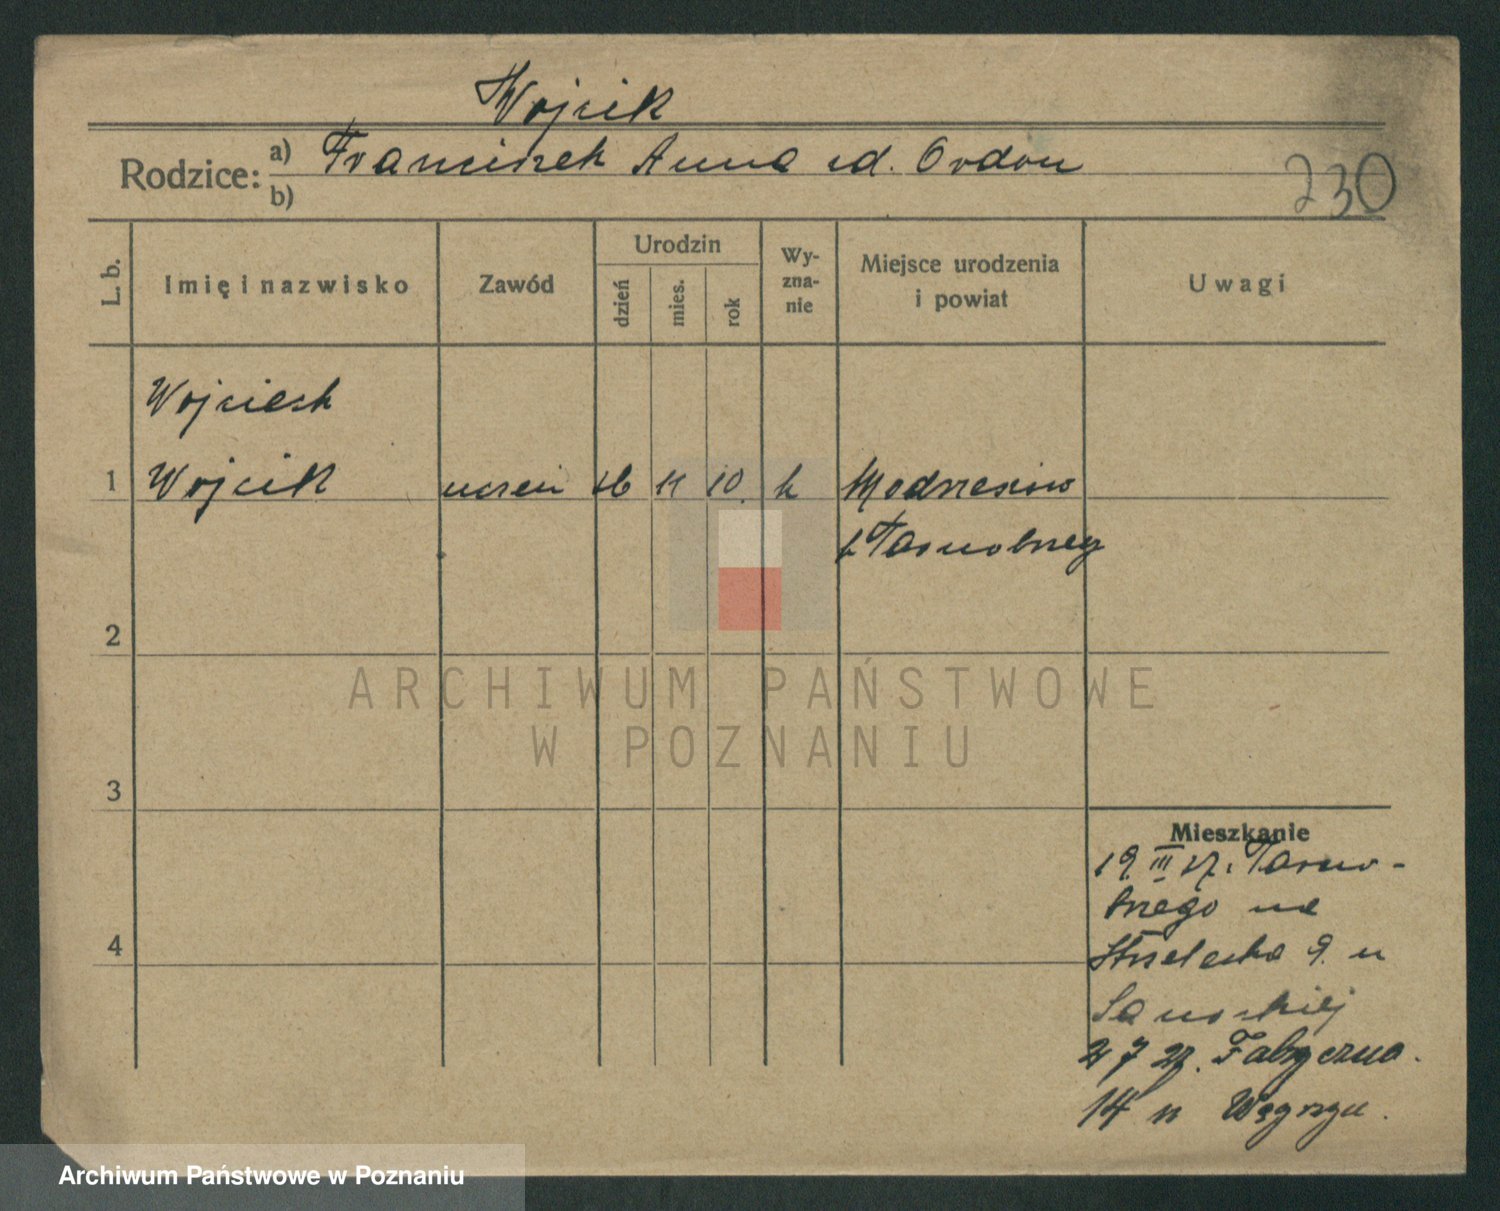 Wojcik
Rodzice: a) Franciszek Anna zd. Ordon
b)
230
L. b.
Imię i nazwisko
Zawód
Urodzin
dzień
mies.
rok
Wy-
zna-
nie
Miejsce urodzenia
i powiat
Uwagi
Wojciech
1 Wojcik uczeń 16 11 10. k
p. Tarnobrzeg
2
ARCHIWUM PAŃSTWOWE
W POZNANIU
3
Mieszkanie
19. III 27. z Tarno-
brzego na
4
Strzelecka 9. u
Sanockiej
7 27. Fabryczna.
14 u
Archiwum Państwowe w Poznaniu